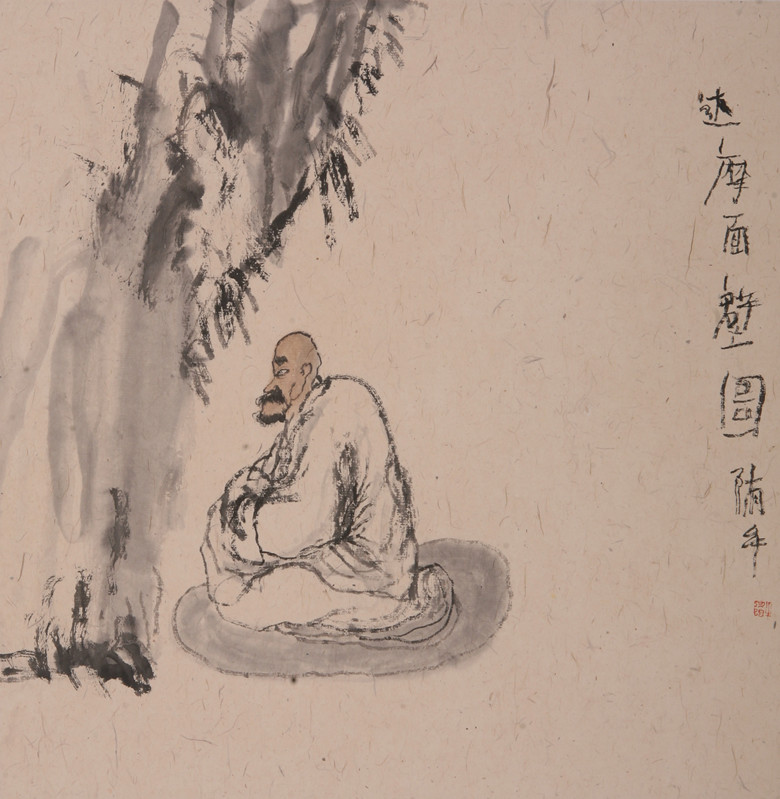 达摩面壁圖 隋牟